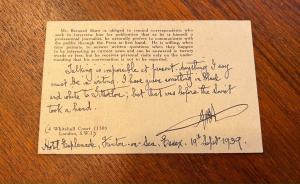 Mr. Bernard Shaw is obliged to remind correspondents who
seek to interview him for publication that as he is himself a
professional journalist, he naturally prefers to communicate with
the public through the Press at first hand. He is willing, when
time permits, to answer written questions when they happen to
be interesting as current news and can be answered in twenty
words or less; but he receives personal visits only on the under-
standing that the conversation is not to be reported.
Talking is impossible at present. Anything I say
must be in writing. I have given something in black
and white to ; but that was before the Soviet
took a hand.
4 Whitehall Court (130)
London, S.W.1
Hotel Esplanade, Frinton-on-Sea, Essex. 19th Sept 1939.